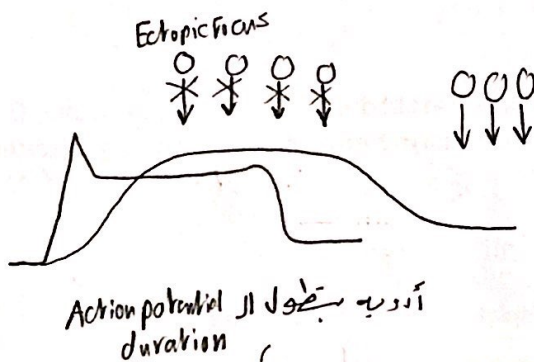 Ectopic Focus
أدويه بتطول ال Action potential
duration